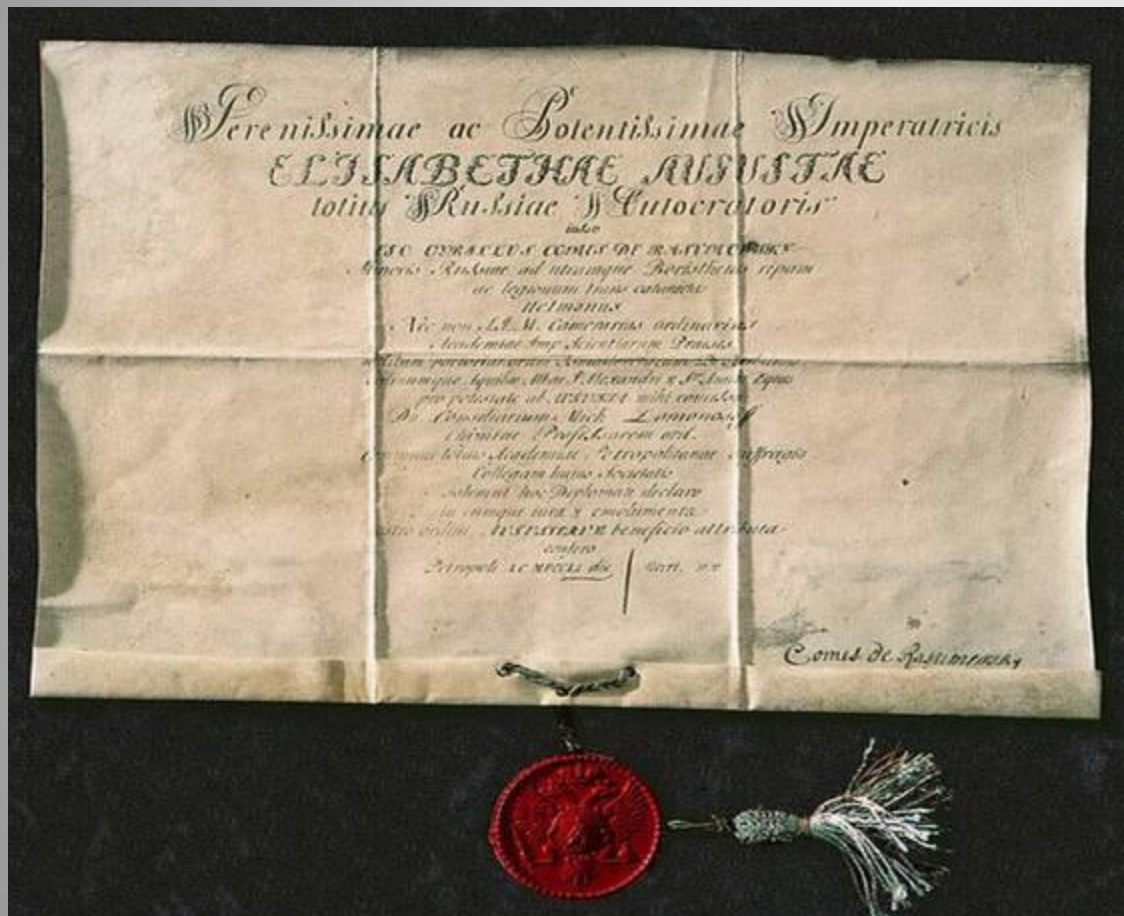 Serenissimae ac Potentissimae Imperatricis
ELISABETHAE AUGUSTAE
totius Russiae Autocratoris
iussu
EGO CYRILLUS COMES DE RASUMOWSKY
Minoris Russiae ad utramque Boristhenis ripam
ac legionum trans
Hetmanus
Nec non S.I.M. Camerarius ordinarius
Academiae Imp Scientiarum Praeses
Aquilae Albae S. Alexandri & St Annae Eques
pro potestate ab AUGUSTA mihi concessa
Dn Consiliarium Mich Lomonosoff
Chimiae Professorem ord.
totius Academiae Petropolitanae suffragio
Collegam huius Societatis
solemni hoc Diplomate declaro
iura & emolumenta
ordini AUGUSTAE beneficio attributa
confero
Petropoli die
Comes de Rasumowsky